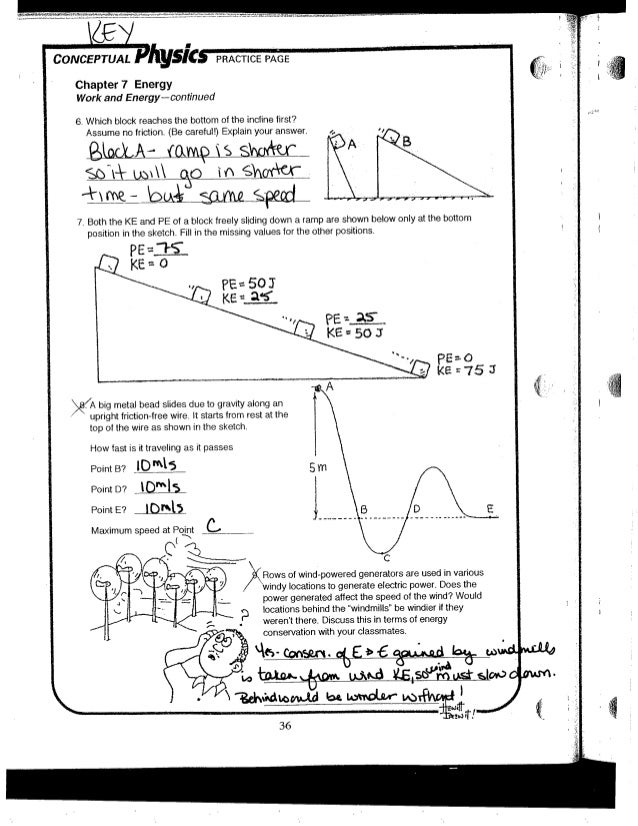 KEY
CONCEPTUAL Physics PRACTICE PAGE
Chapter 7 Energy
Work and Energy—continued
6. Which block reaches the bottom of the incline first?
Assume no friction. (Be careful!) Explain your answer.
Block A- ramp is shorter
so it will go in shorter
time - but same speed
A
B
7. Both the KE and PE of a block freely sliding down a ramp are shown below only at the bottom
position in the sketch. Fill in the missing values for the other positions.
PE = 75
KE = 0
PE = 50 J
KE = 25
PE = 25
KE = 50 J
PE = 0
KE = 75 J
8. A big metal bead slides due to gravity along an
upright friction-free wire. It starts from rest at the
top of the wire as shown in the sketch.
How fast is it traveling as it passes
Point B? 10 m/s
Point D? 10 m/s
Point E? 10 m/s
Maximum speed at Point C
A
5 m
B
D
E
C
Rows of wind-powered generators are used in various
windy locations to generate electric power. Does the
power generated affect the speed of the wind? Would
locations behind the "windmills" be windier if they
weren't there. Discuss this in terms of energy
conservation with your classmates.
?
Yes - conserv. of E → E gained by windmills
is taken from wind KE, so wind must slow down.
Behind would be windier without!
Hewitt
Drewit!
36